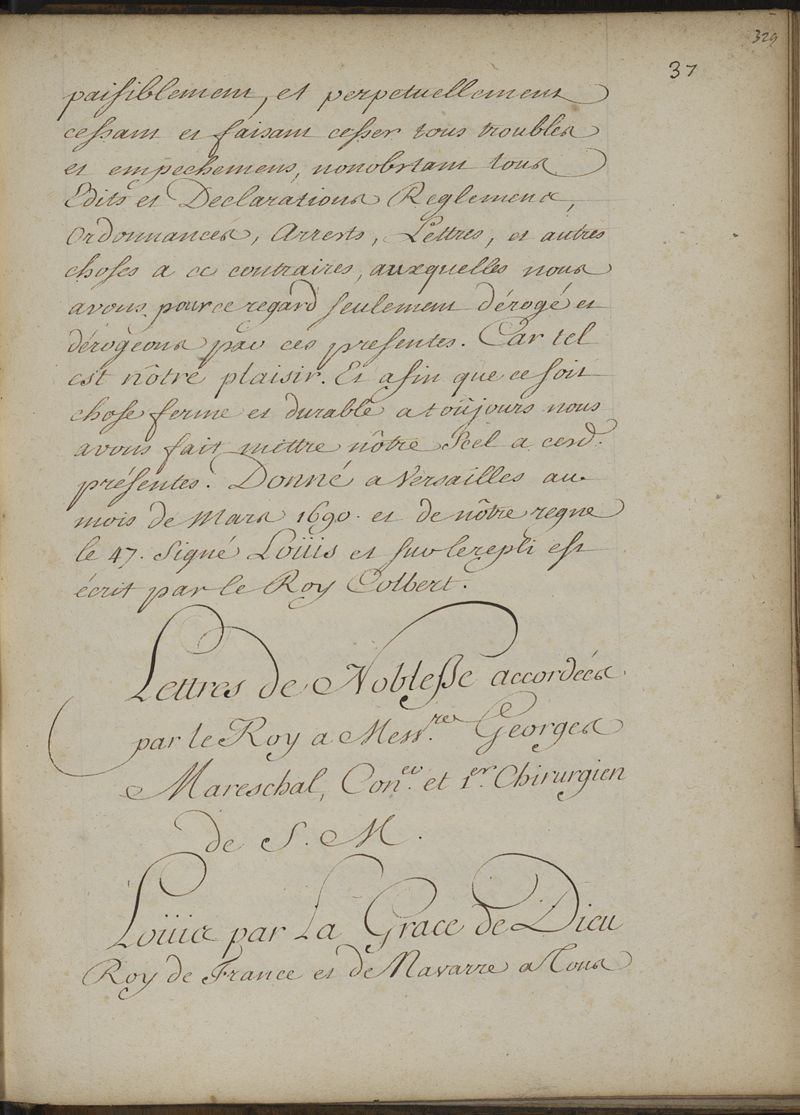 329
37
paisiblement, et perpetuellement
cessant et faisant cesser tous troubles
et empechemens, nonobstant tous
Edits et Declarations Reglemens,
Ordonnances, Arrests, Lettres, et autres
choses a ce contraires, auxquelles nous
avons pour ce regard seulement dérogé et
dérogeons par ces presentes. Car tel
est nôtre plaisir. Et afin que ce soit
chose ferme et durable a toûjours nous
avons fait mettre nôtre Scel a cesd.
présentes. Donné a Versailles au
mois de Mars 1690. et de nôtre regne
le 47. Signé Loüis et sur le repli est
écrit par le Roy Colbert.
Lettres de Noblesse accordées
par le Roy a Mess.re Georges
Mareschal, Con.er et 1.er Chirurgien
de S. M.
Loüis par La Grace de Dieu
Roy de France et de Navarre a Tous